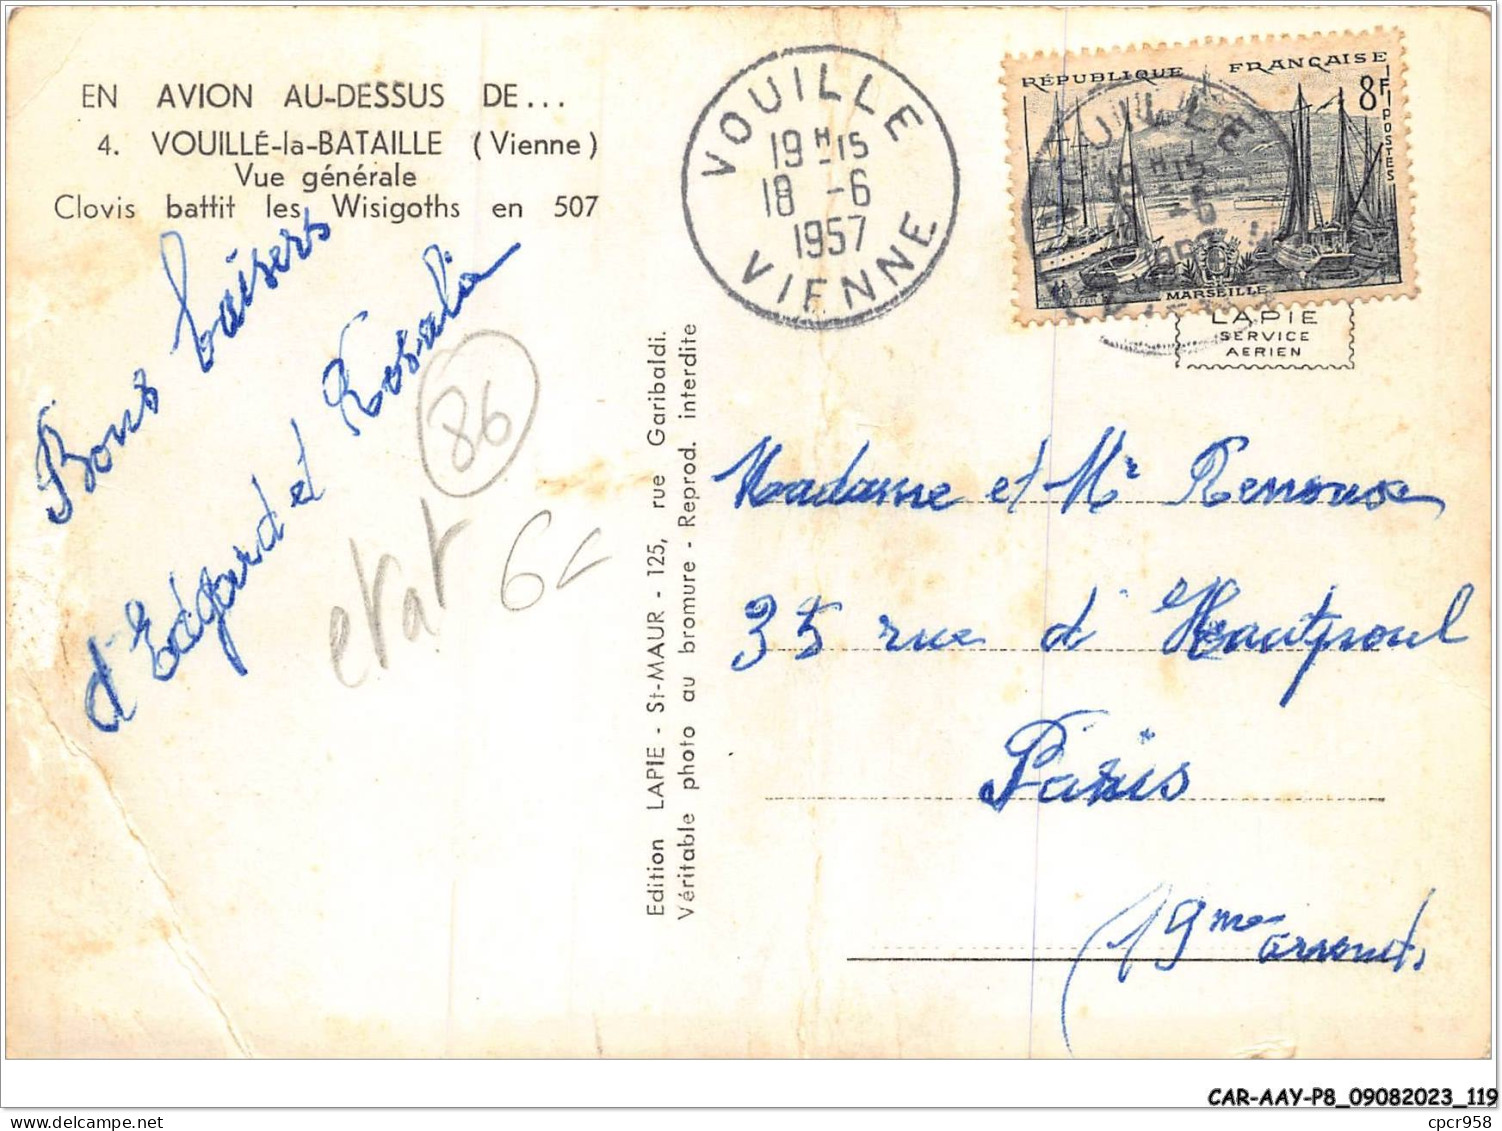 EN AVION AU-DESSUS DE...
4. VOUILLÉ-la-BATAILLE (Vienne)
Vue générale
Clovis battit les Wisigoths en 507
Bons baisers
d'Edgard et Rosalia
86
etat
6
Edition LAPIE - St-MAUR - 125, rue Garibaldi.
Véritable photo au bromure - Reprod. interdite
VOUILLE
19H15
18 -6
1957
VIENNE
RÉPUBLIQUE FRANÇAISE
8F
POSTES
MARSEILLE
VOUILLE
19H15
-6
LAPIE
SERVICE
AERIEN
Madame et Mr Renoux
35 rue d'Hautpoul
Paris
(19me arrondt
CAR-AAY-P8_09082023_119
cpcr958